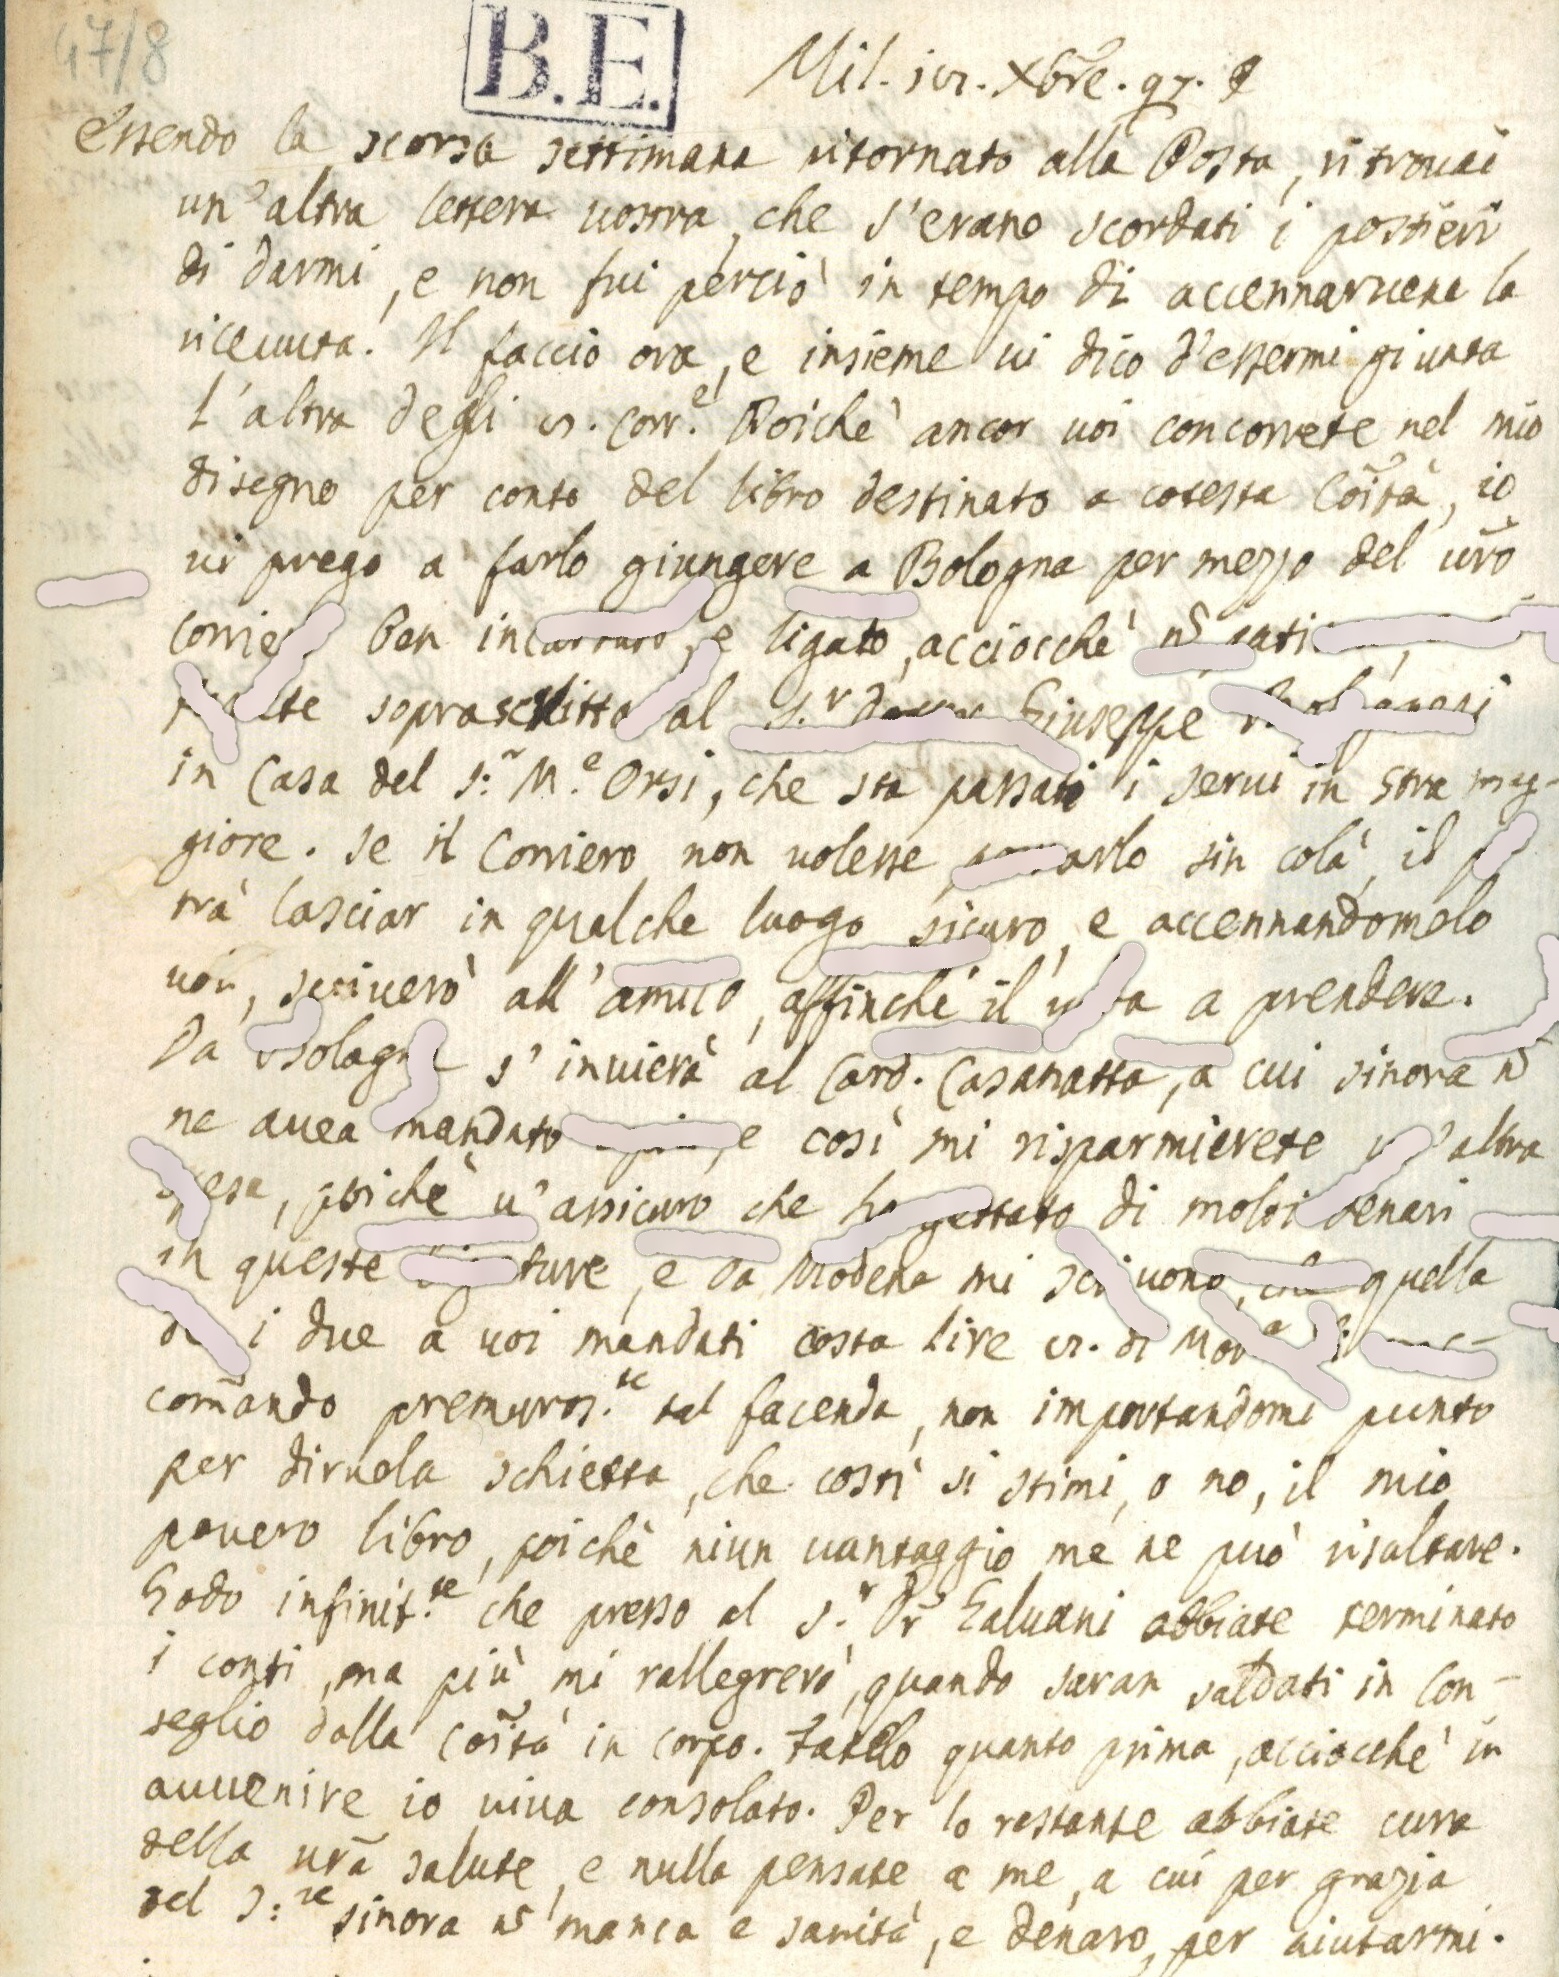 47/8
B.E.
Mil. Xbre. 97.
Essendo la scorsa settimana ritornato alla Posta, ritrovai
un'altra lettera vostra, che s'erano scordati i postieri
di darmi, e non fui perciò in tempo di accennarvene la
ricevuta. Il faccio ora, e insieme vi dico d'essermi giunta
l'altra degli corr.e Poichè ancor voi concorrete nel mio
disegno per conto del libro destinato a cotesta Coità, io
vi prego a farlo giungere a Bologna per mezzo del vro
ben e ligato, acciocchè
soprascritto al S.r Giuseppe
in Casa del S.r M.e Orsi, che sta passati i servi in Stra mag-
giore. Se il Corriero non volesse sin colà, il
trà lasciar in qualche luogo sicuro, e accennandomelo
voi, scriverò all'amico, affinchè il a prendere.
Da s'invierà al Card. Casanatta, a cui sinora
ne avea mandato e così mi risparmierete altra
poichè v'assicuro che ho gettato di molti denari
in queste e da Modena mi quella
i due a voi mandati costa lire di
comando premuros.te tal facenda, non importandomi punto
per dirvela schietta, che costì si stimi, o no, il mio
povero libro, poichè niun vantaggio me ne può risultare.
Godo infinit.te che presso al S.r Dr Galvani abbiate terminato
i conti, ma più mi rallegrerò, quando saran saldati in Con-
seglio dalla Coità in corpo. Fatelo quanto prima, acciocchè in
avvenire io viva consolato. Per lo restante abbiate cura
della vra salute, e nulla pensate a me, a cui per grazia
del S:re sinora nō manca e sanità, e denaro, per aiutarmi.